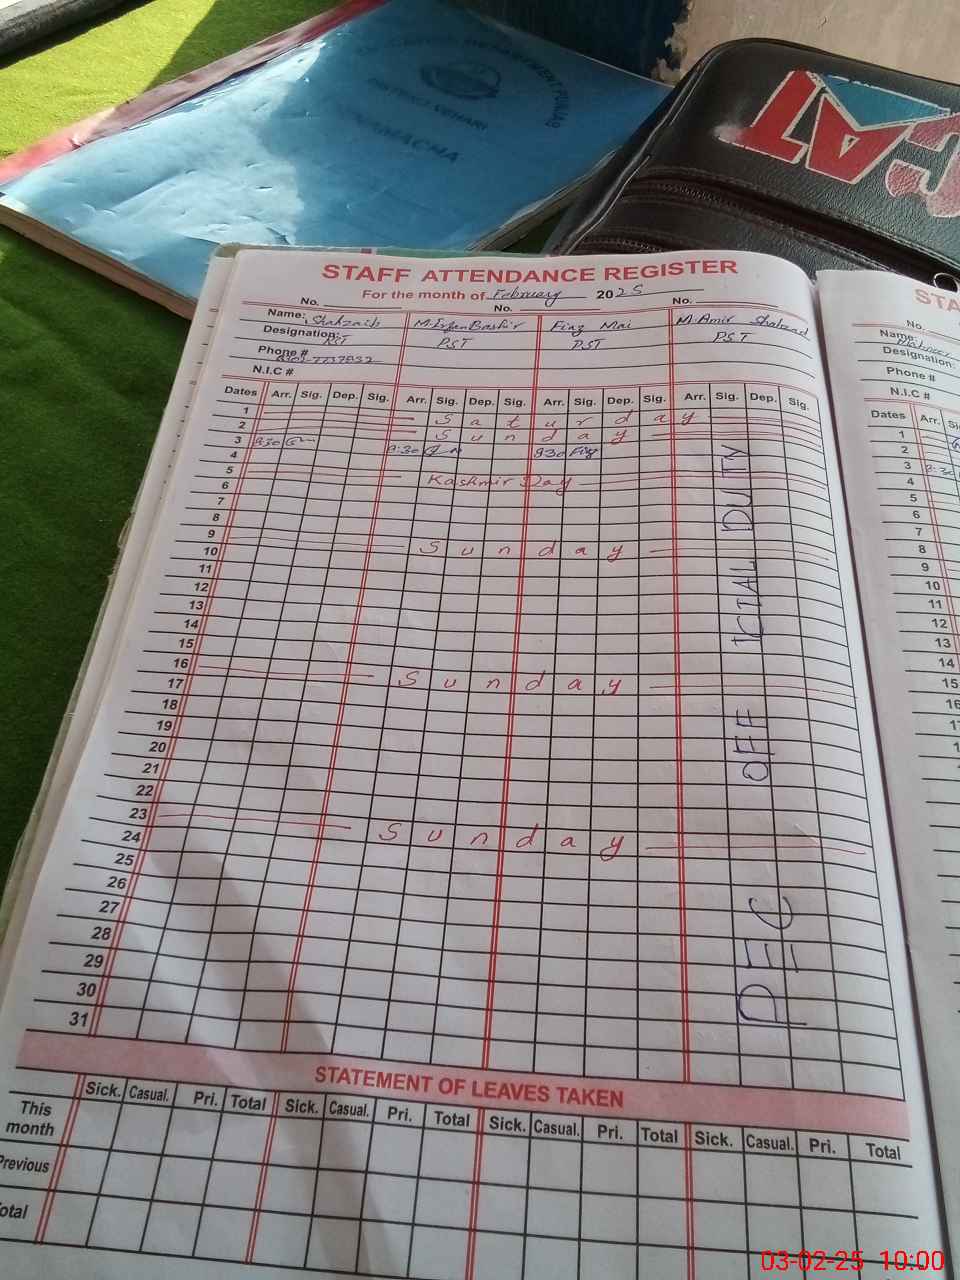 EDUCATION DEPARTMENT PUNJAB
DISTRICT VEHARI
CAT
STAFF ATTENDANCE REGISTER
For the month of February 2025
No. No. No.
Name: Shahzaib M. Irfan Bashir Fiaz Mai M. Amir Shahzad
Designation: PST PST PST
Phone #
N.I.C #
Dates Arr. Sig. Dep. Sig. Arr. Sig. Dep. Sig. Arr. Sig. Dep. Sig. Arr. Sig. Dep. Sig.
1 Saturday
2 Sunday
3 8:30 8:30 830
4
5 Kashmir Day
6
7
8
9 Sunday
10
11
12
13
14
15
16 Sunday
17
18
19
20
21
22
23 Sunday
24
25
26
27
28
29
30
31
PEC OFFICIAL DUTY
STATEMENT OF LEAVES TAKEN
Sick. Casual. Pri. Total Sick. Casual. Pri. Total Sick. Casual. Pri. Total Sick. Casual. Pri. Total
This month
Previous
Total
STA
No.
Name:
Designation:
Phone #
N.I.C #
Dates Arr.
1
2
3
4
5
6
7
8
9
10
11
12
13
14
15
16
17
03-02-25 10:00